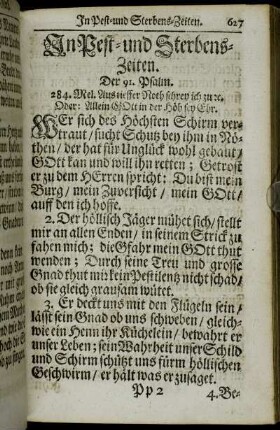 In Pest-und Sterbens-Zeiten. 627
In Pest- und Sterbens-
Zeiten.
Der 91. Psalm.
284. Mel. Aus tieffer Noth schrey ich zu ꝛc.
Oder: Allein GOtt in der Höh sey Ehr.
WEr sich des Höchsten Schirm ver-
traut / sucht Schutz bey ihm in Nö-
then / der hat für Unglück wohl gebaut /
GOtt kan und will ihn retten; Getrost
er zu dem HErren spricht: Du bist mein
Burg / mein Zuversicht / mein GOtt /
auff den ich hoffe.
2. Der höllisch Jäger mühet sich / stellt
mir an allen Enden / in seinem Strick zu
fahen mich: die Gfahr mein GOtt thut
wenden; Durch seine Treu und grosse
Gnad thut mir kein Pestilentz nicht schad /
ob sie gleich grausam wütet.
3. Er deckt uns mit den Flügeln sein /
lässt sein Gnad ob uns schweben / gleich-
wie ein Henn ihr Küchelein / bewahrt er
unser Leben; sein Wahrheit unser Schild
und Schirm schützt uns fürm höllischen
Geschwirm / er hält was er zusaget.
Pp 2 4. Be-